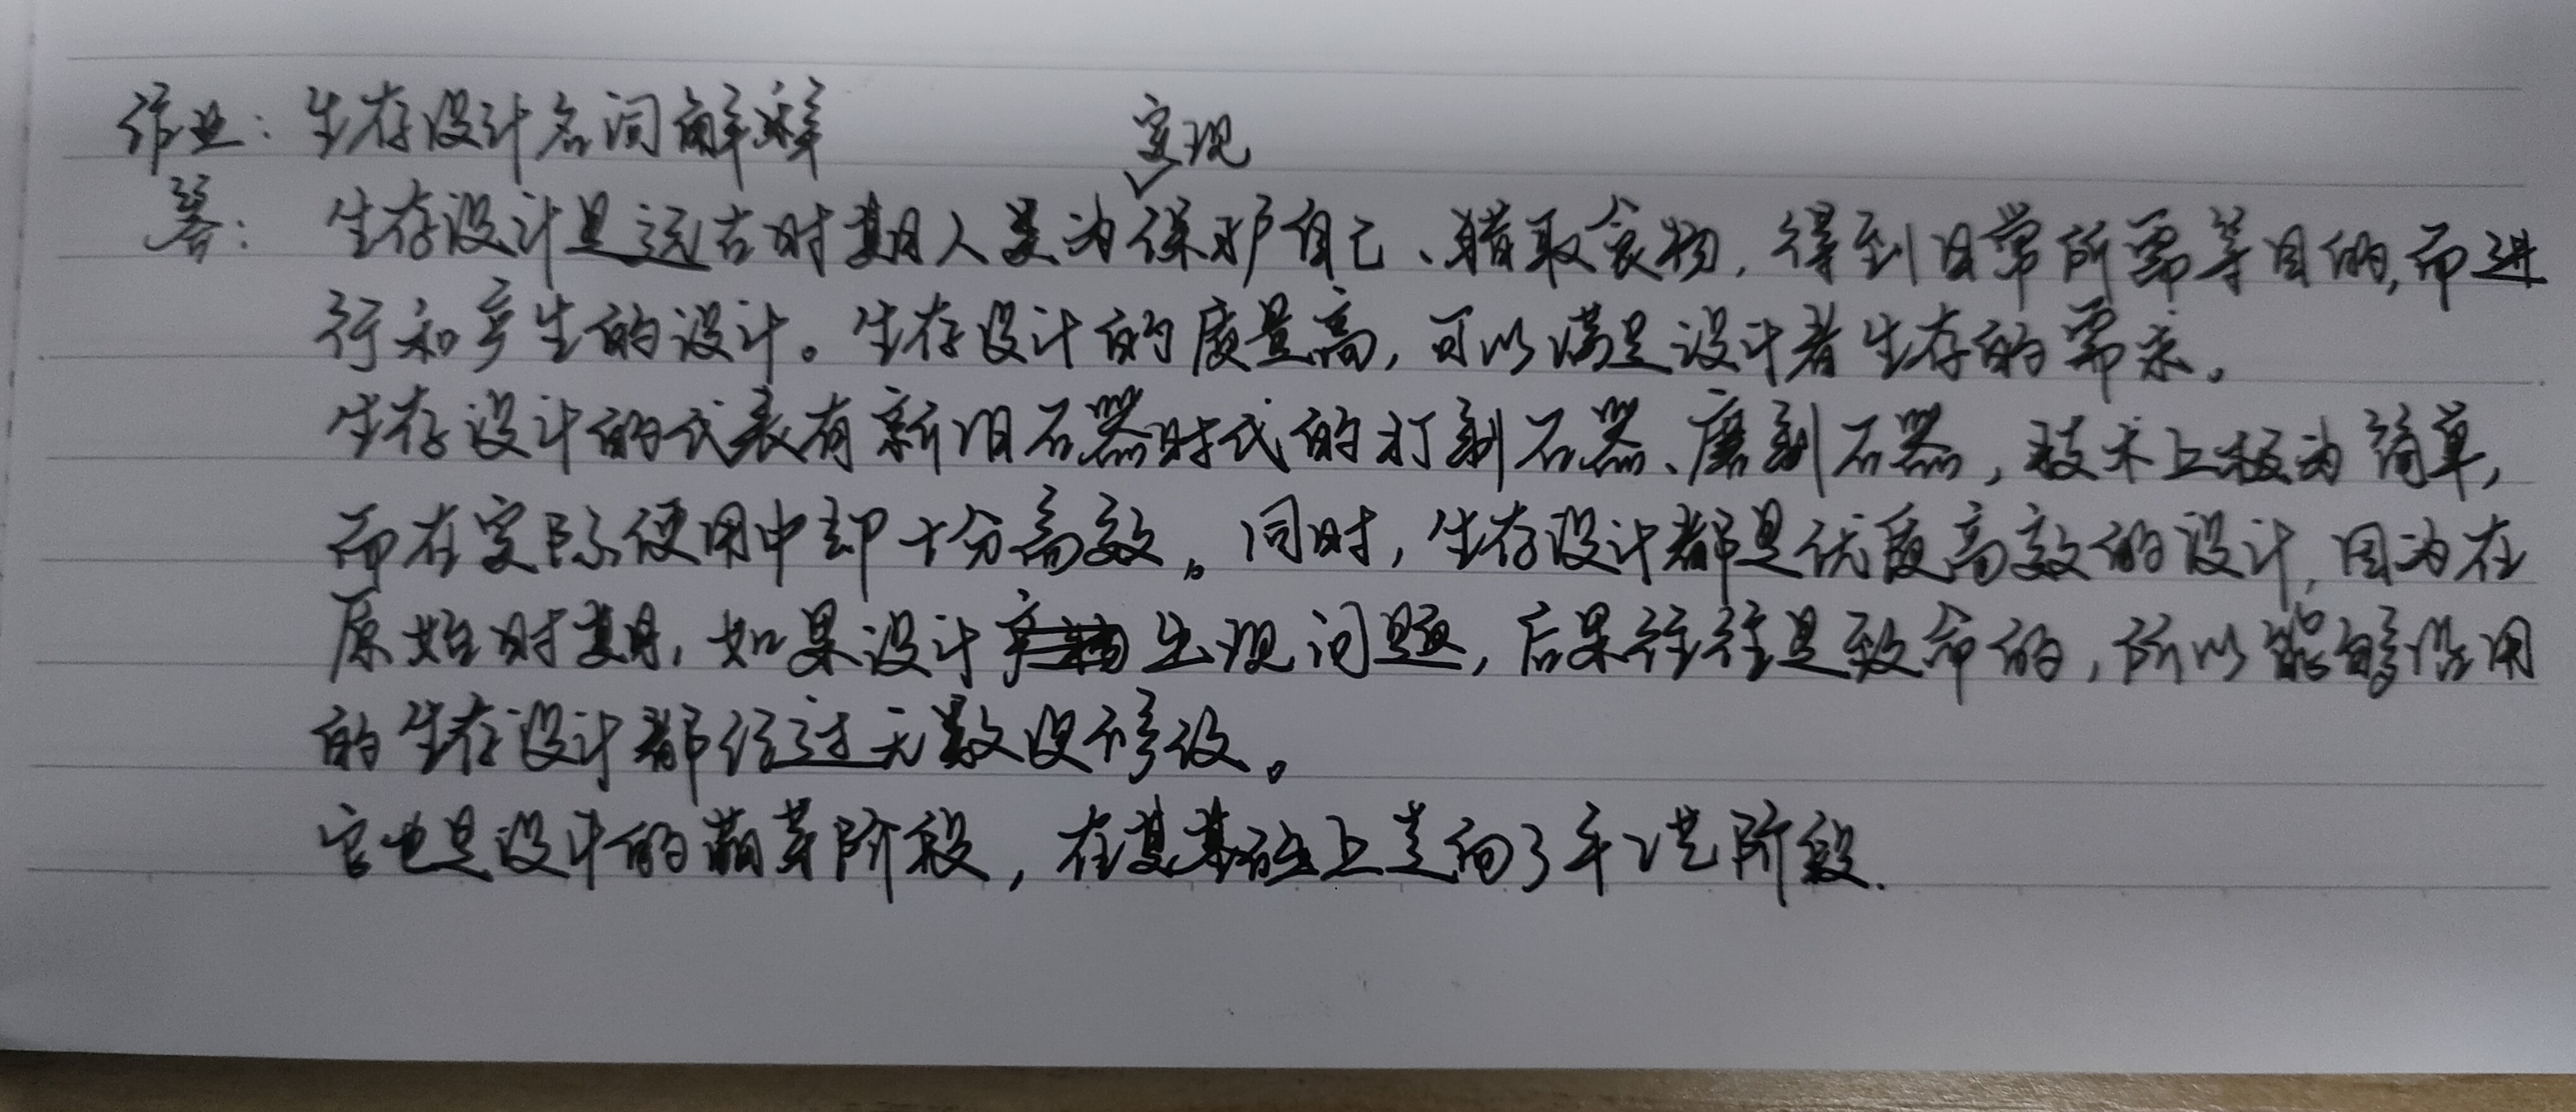 作业：生存设计名词解释
实现
答：生存设计是远古时期人类为保护自己、猎取食物，得到日常所需等目的，而进
行和产生的设计。生存设计的质量高，可以满足设计者生存的需求。
生存设计的代表有新旧石器时代的打制石器、磨制石器，技术上极为简单，
而在实际使用中却十分高效。同时，生存设计都是优质高效的设计，因为在
原始时期，如果设计出现问题，后果往往是致命的，所以能够沿用
的生存设计都经过无数没修改。
它也是设计的萌芽阶段，在其基础上走向了手工艺阶段.